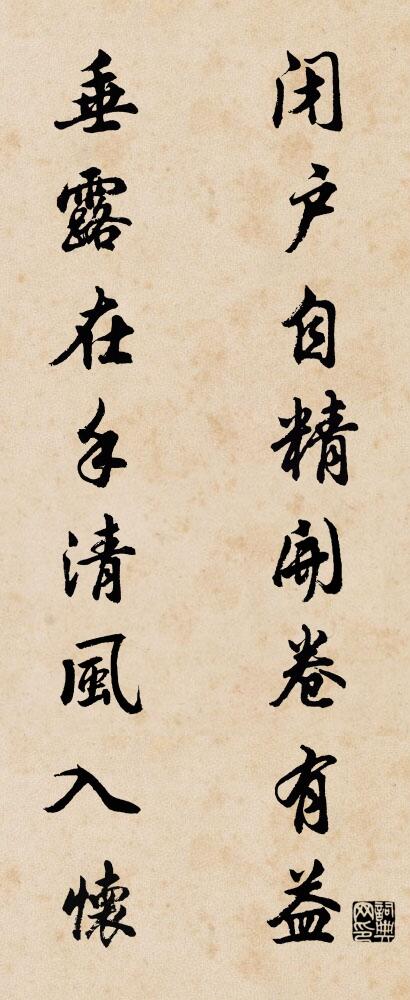 闭户自精開卷有益
垂露在手清風入懷
詞典网印